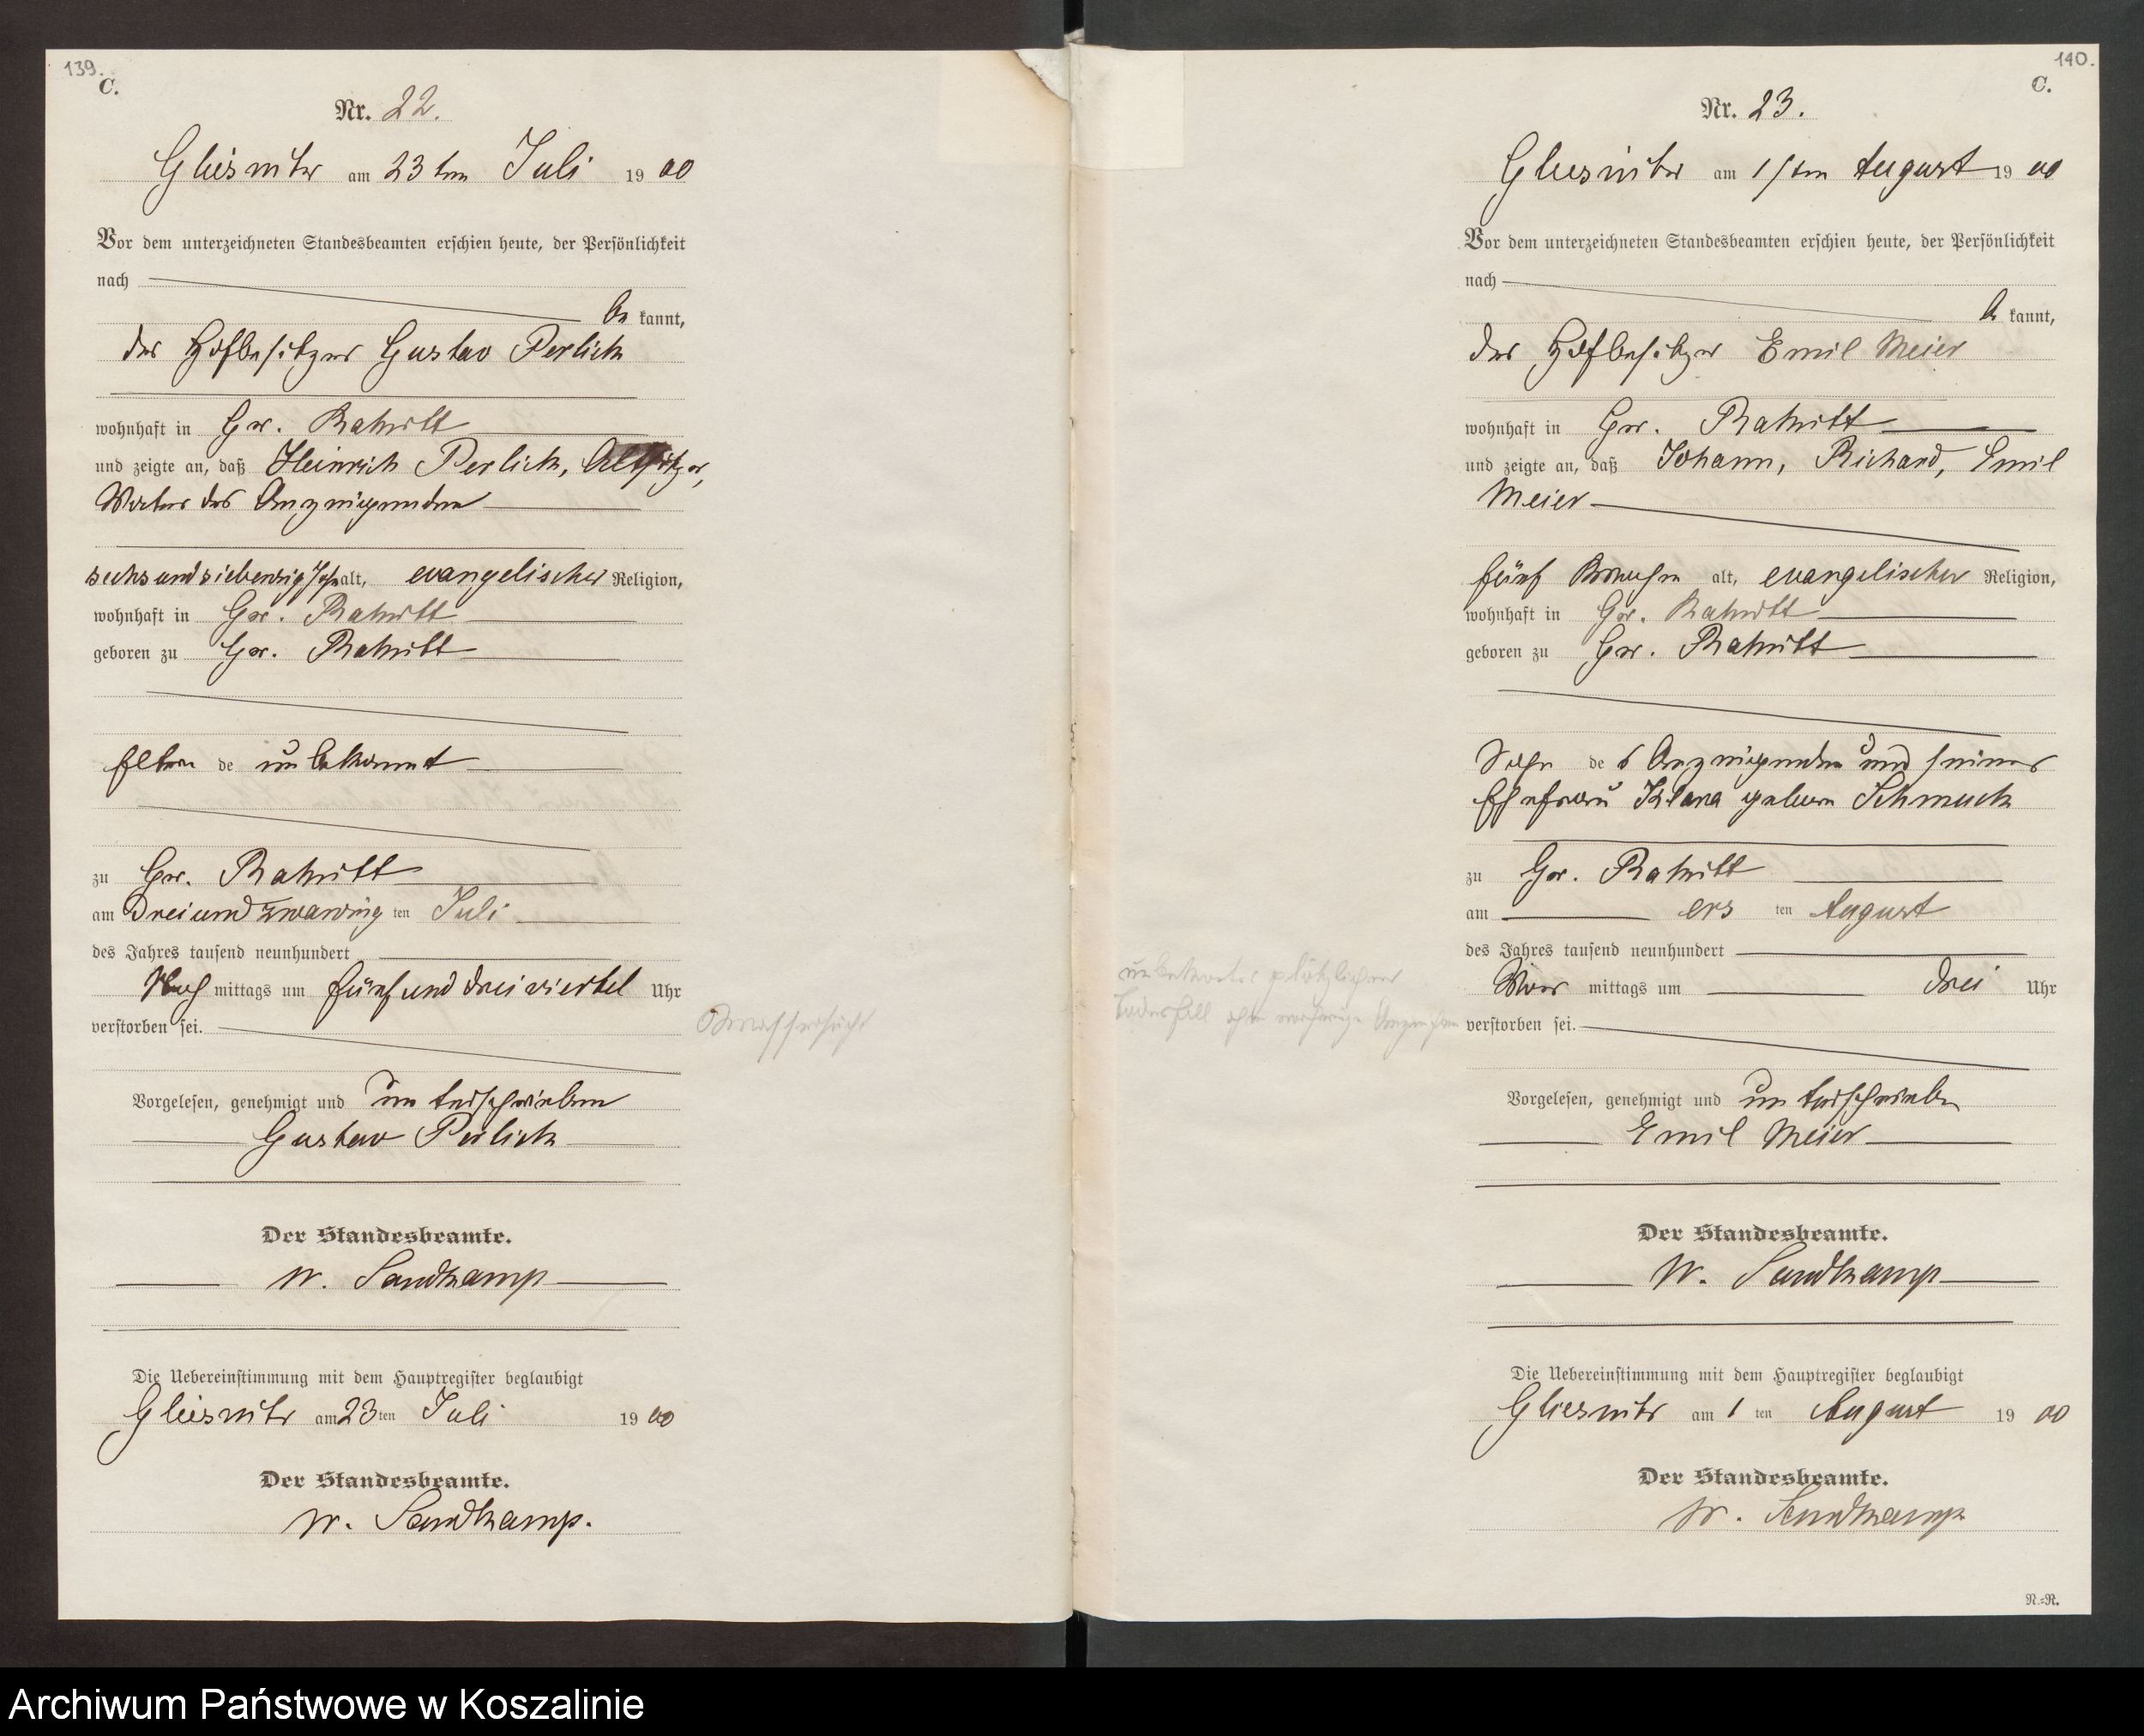 139.
C.
Nr. 22.
Gliesnitz am 23ten Juli 1900
Vor dem unterzeichneten Standesbeamten erschien heute, der Persönlichkeit
nach
be kannt,
der Hofbesitzer Gustav Perlick
wohnhaft in Gr. Rakitt
und zeigte an, daß Heinrich Perlick, Altsitzer,
Vater des Anzeigenden
sechsundsiebenzig Jahr alt, evangelischer Religion,
wohnhaft in Gr. Rakitt
geboren zu Gr. Rakitt
Eltern de unbekannt
zu Gr. Rakitt
am dreiundzwanzig ten Juli
des Jahres tausend neunhundert
Nach mittags um fünf und dreiviertel Uhr
verstorben sei.
Wassersucht
Vorgelesen, genehmigt und unterschrieben
Gustav Perlick
Der Standesbeamte.
W. Sandkamp
Die Uebereinstimmung mit dem Hauptregister beglaubigt
Gliesnitz am 23ten Juli 1900
Der Standesbeamte.
W. Sandkamp.
140.
C.
Nr. 23.
Gliesnitz am 1sten August 1900
Vor dem unterzeichneten Standesbeamten erschien heute, der Persönlichkeit
nach
be kannt,
der Hofbesitzer Emil Meier
wohnhaft in Gr. Rakitt
und zeigte an, daß Johann, Richard, Emil
Meier
fünf Wochen alt, evangelischer Religion,
wohnhaft in Gr. Rakitt
geboren zu Gr. Rakitt
Sohn des Anzeigenden und seiner
Ehefrau Klara geborn Schmuck
zu Gr. Rakitt
am ers ten August
des Jahres tausend neunhundert
Vor mittags um drei Uhr
plötzlicher
Todesfall ohne vorherige Anzeichen
verstorben sei.
Vorgelesen, genehmigt und unterschrieben
Emil Meier
Der Standesbeamte.
W. Sandkamp
Die Uebereinstimmung mit dem Hauptregister beglaubigt
Gliesnitz am 1 ten August 1900
Der Standesbeamte.
W. Sandkamp
N.-R.
Archiwum Państwowe w Koszalinie